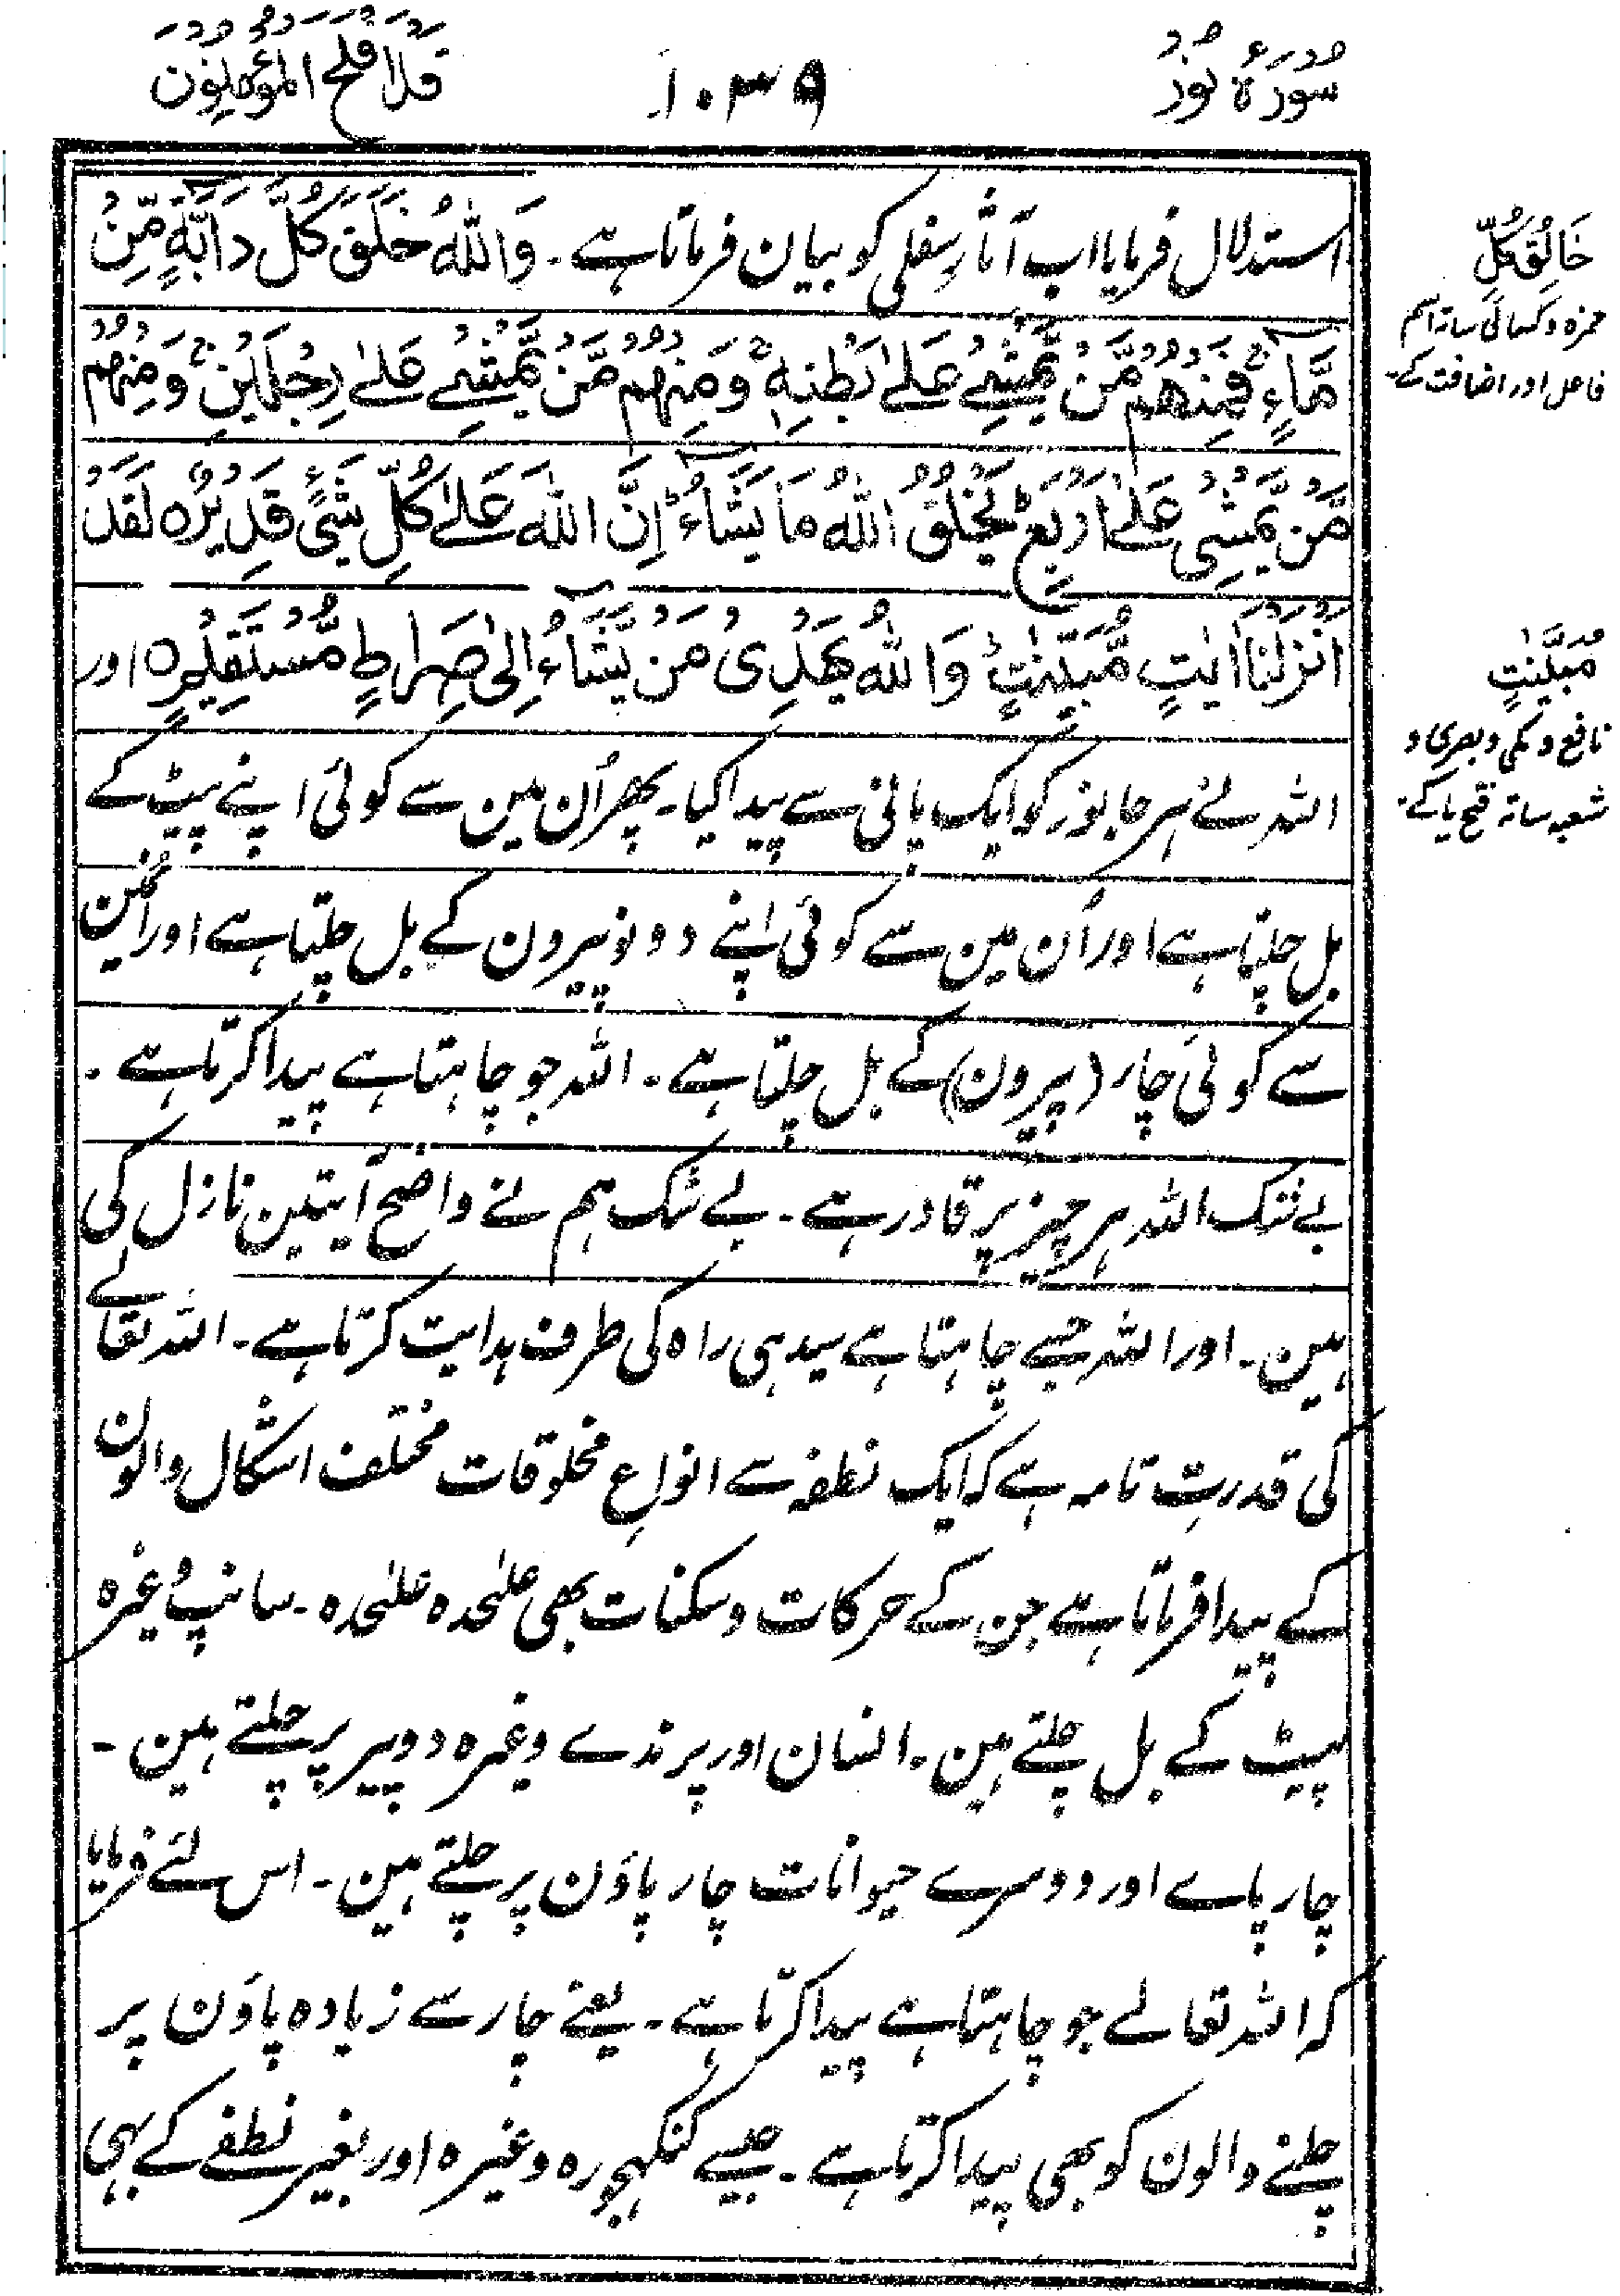 سُوْرَةُ نُوْرْ
۱۰۳۹
قَدْ اَفْلَحَ الْمُؤْمِنُوْنَ
استدلال فرمایا اب آثارِ سفلی کو بیان فرماتا ہے۔ وَاللّٰهُ خَلَقَ كُلَّ دَآبَّةٍ مِّنْ
مَّآءٍ ۚ فَمِنْهُمْ مَّنْ يَّمْشِيْ عَلٰى بَطْنِهٖ ۚ وَمِنْهُمْ مَّنْ يَّمْشِيْ عَلٰى رِجْلَيْنِ ۚ وَمِنْهُمْ
مَّنْ يَّمْشِيْ عَلٰٓى اَرْبَعٍ ؕ يَخْلُقُ اللّٰهُ مَا يَشَآءُ ؕ اِنَّ اللّٰهَ عَلٰى كُلِّ شَيْءٍ قَدِيْرٌ ه لَقَدْ
اَنْزَلْنَآ اٰيٰتٍ مُّبَيِّنٰتٍ ؕ وَاللّٰهُ يَهْدِيْ مَنْ يَّشَآءُ اِلٰى صِرَاطٍ مُّسْتَقِيْمٍ ه اور
اللہ نے ہر جانور کو ایک پانی سے پیدا کیا۔ پھر اُن مین سے کوئی اپنے پیٹ کے
بل چلتا ہے اور اُن مین سے کوئی اپنے دونو پیرون کے بل چلتا ہے اور اُنمین
سے کوئی چار (پیرون) کے بل چلتا ہے۔ اللہ جو چاہتا ہے پیدا کرتا ہے۔
بے شک اللہ ہر چیز پر قادر ہے۔ بے شک ہم نے واضح آیتین نازل کی
ہین۔ اور اللہ جسے چاہتا ہے سیدہی راہ کی طرف ہدایت کرتا ہے۔ اللہ تعالے
کی قدرتِ تامہ ہے کہ ایک نطفہ سے انواعِ مخلوقات مختلف اشکال والون
کے پیدا فرماتا ہے جن کے حرکات و سکنات بھی علٰحدہ علٰحدہ۔ سانپ وغیرہ
پیٹ کے بل چلتے ہین۔ انسان اور پرندے وغیرہ دو پیر پر چلتے ہین۔
چار پاے اور دوسرے حیوانات چار پاؤن پر چلتے ہین۔ اس لئے فرمایا
کہ اللہ تعالے جو چاہتا ہے پیدا کرتا ہے۔ یعنے چار سے زیادہ پاؤن پر
چلنے والون کو بھی پیدا کرتا ہے۔ جیسے کنکہجورہ وغیرہ اور بغیر نطفے کے بہی
خَالِقُ كُلِّ
حمزہ و کسائی ساتہ اسم
فاعل اور اضافت کے۔
مُبَيَّنٰتٍ
نافع و مکی و بصری و
شعبہ ساتہ فتح یا کے۔